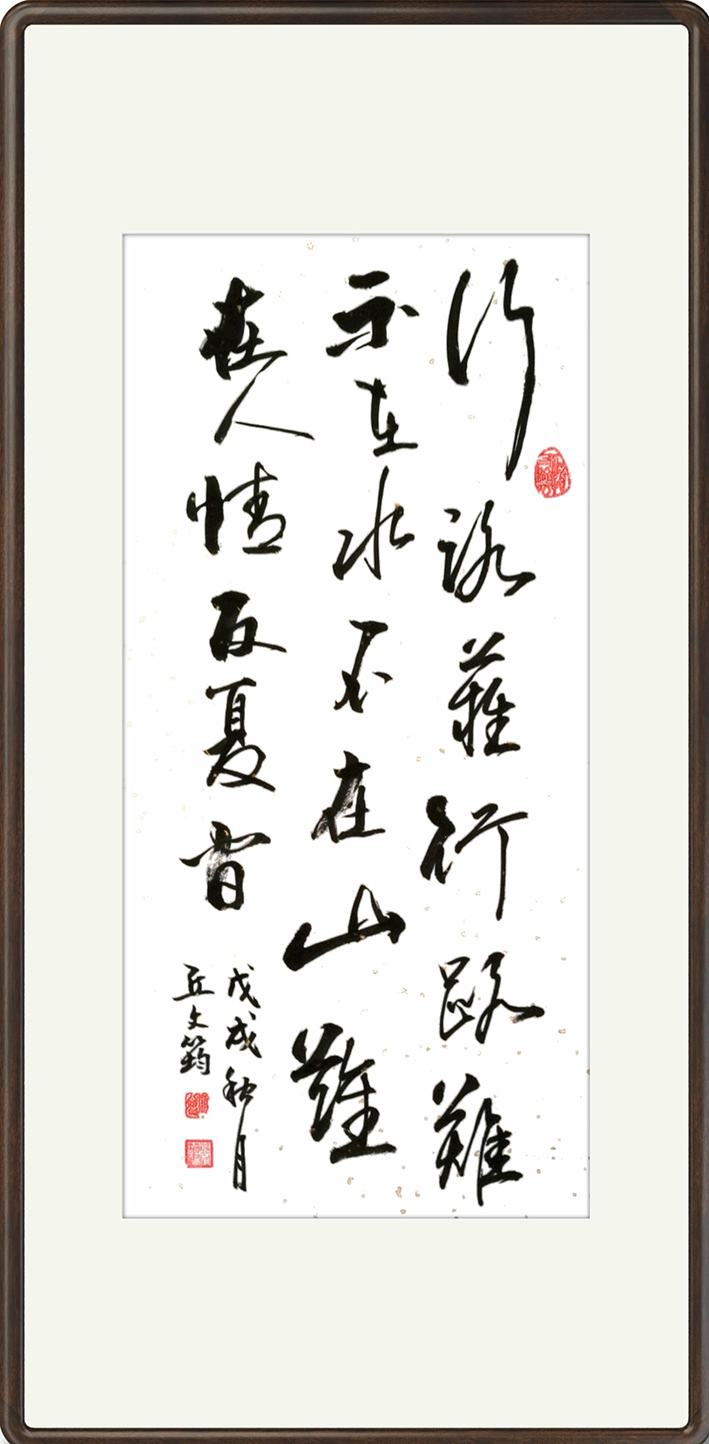 行路難行路難
不在水不在山難
在人情反复間
戊戌秋月
丘文筠